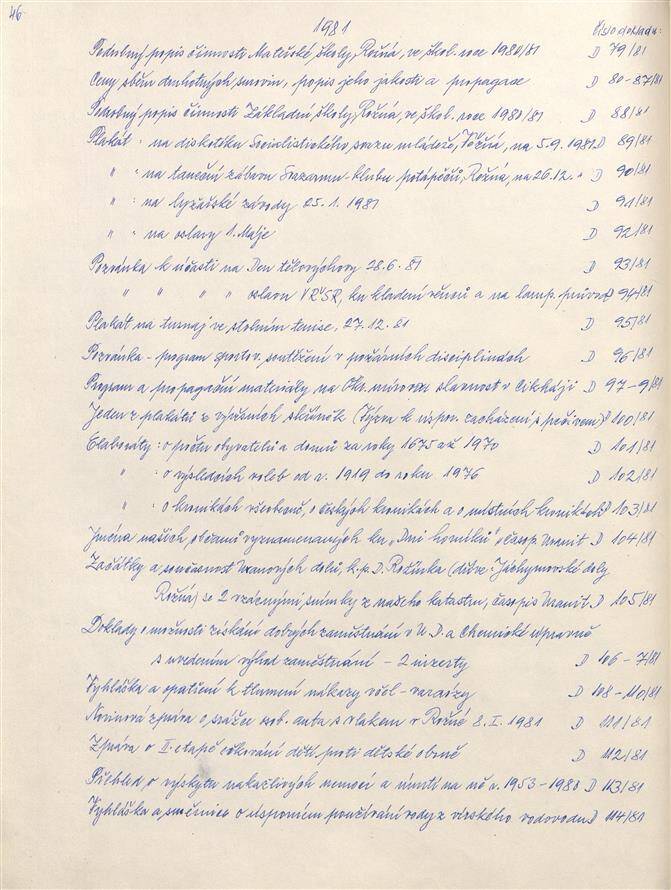 46
1981
Číslo dokladu:
Podrobný popis činnosti Mateřské školy, Rožná, ve škol. roce 1980/81 D 79/81
Ceny sběru druhotných surovin, popis jeho jakosti a propagace D 80-87/81
Podrobný popis činnosti Základní školy, Rožná, ve škol. roce 1980/81 D 88/81
Plakát : na diskotéku Socialistického svazu mládeže, Rožná, na 5.9.1981 D 89/81
" : na taneční zábavu Svazarmu-klubu potápěčů, Rožná, na 26.12. " D 90/81
" : na lyžařské závody 25.1.1981 D 91/81
" : na oslavy 1. Máje D 92/81
Pozvánka k účasti na Den tělovýchovy 28.6.81 D 93/81
" " " " oslavu VŘSR, ku kladení věnců a na lamp. průvod D 94/81
Plakát na turnaj ve stolním tenise, 27.12.81 D 95/81
Pozvánka - program sportov. soutěžení v požárních disciplinách D 96/81
Program a propagační materiály na Okr. mírovou slavnost v Cikháji D 97-9/81
Jeden z plakátů z výložních skříněk (Výzva k uspoř. zacházení s pečivem) D 100/81
Elaboráty : o počtu obyvatelů a domů za roky 1675 až 1970 D 101/81
" : o výsledcích voleb od r. 1919 do roku 1976 D 102/81
" : o kronikách všeobecně, o českých kronikách a o místních kronikách D 103/81
Jména našich občanů vyznamenaných ku „Dni horníků" časop. Uranit D 104/81
Začátky a současnost Uranových dolů, k.p. D. Rožínka (dříve: Jáchymovské doly
Rožná) se 2 vzácnými snímky z našeho katastru, časopis Uranit D 105/81
Doklady o možnosti získání dobrých zaměstnání v U.D. a Chemické úpravně
s uvedením výhod zaměstnání - 2 inzerty D 106-7/81
Vyhláška a opatření k tlumení nákazy včel - varoázy D 108-110/81
Novinová zpráva o srážce osob. auta s vlakem v Rožné 8.I.1981 D 111/81
Zpráva o II. etapě očkování dětí proti dětské obrně D 112/81
Přehled o výskytu nakažlivých nemocí a úmrtí na ně r. 1953-1980 D 113/81
Vyhláška a směrnice o úsporném používání vody z vírského vodovodu D 114/81